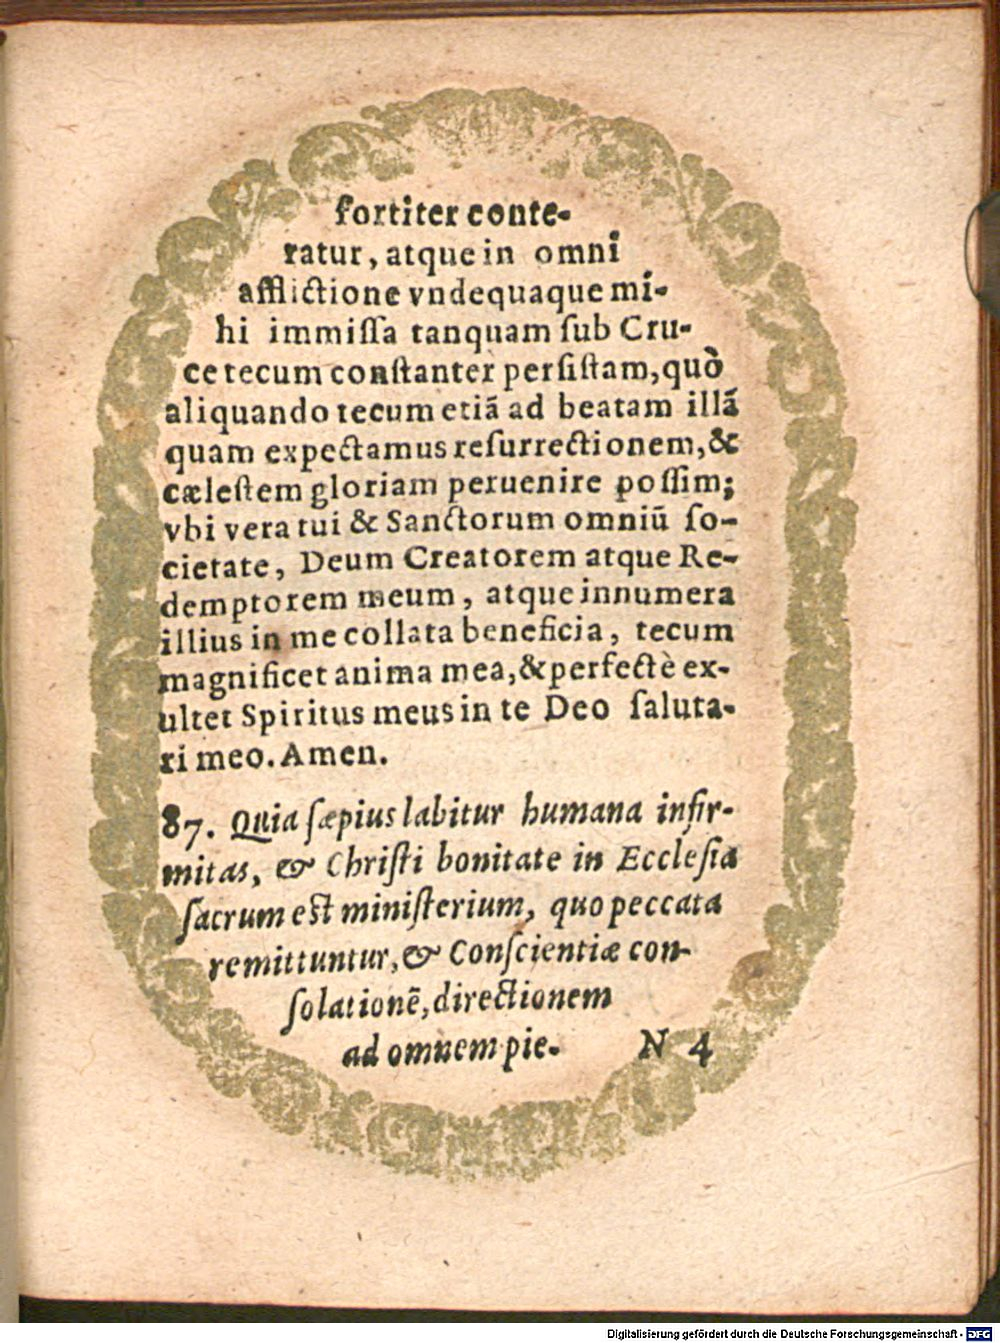 fortiter conte-
ratur, atque in omni
afflictione vndequaque mi-
hi immiſſa tanquam ſub Cru-
ce tecum conſtanter perſiſtam, quò
aliquando tecum etiã ad beatam illã
quam expectamus reſurrectionem, &
cæleſtem gloriam peruenire poſſim;
vbi vera tui & Sanctorum omniũ ſo-
cietate, Deum Creatorem atque Re-
demptorem meum, atque innumera
illius in me collata beneficia, tecum
magnificet anima mea, & perfectè ex-
ultet Spiritus meus in te Deo ſaluta-
ri meo. Amen.
87. Quia ſæpius labitur humana infir-
mitas, & Chriſti bonitate in Eccleſia
ſacrum eſt miniſterium, quo peccata
remittuntur, & Conſcientiæ con-
ſolationẽ, directionem
ad omnem pie-
N 4
Digitalisierung gefördert durch die Deutsche Forschungsgemeinschaft - DFG